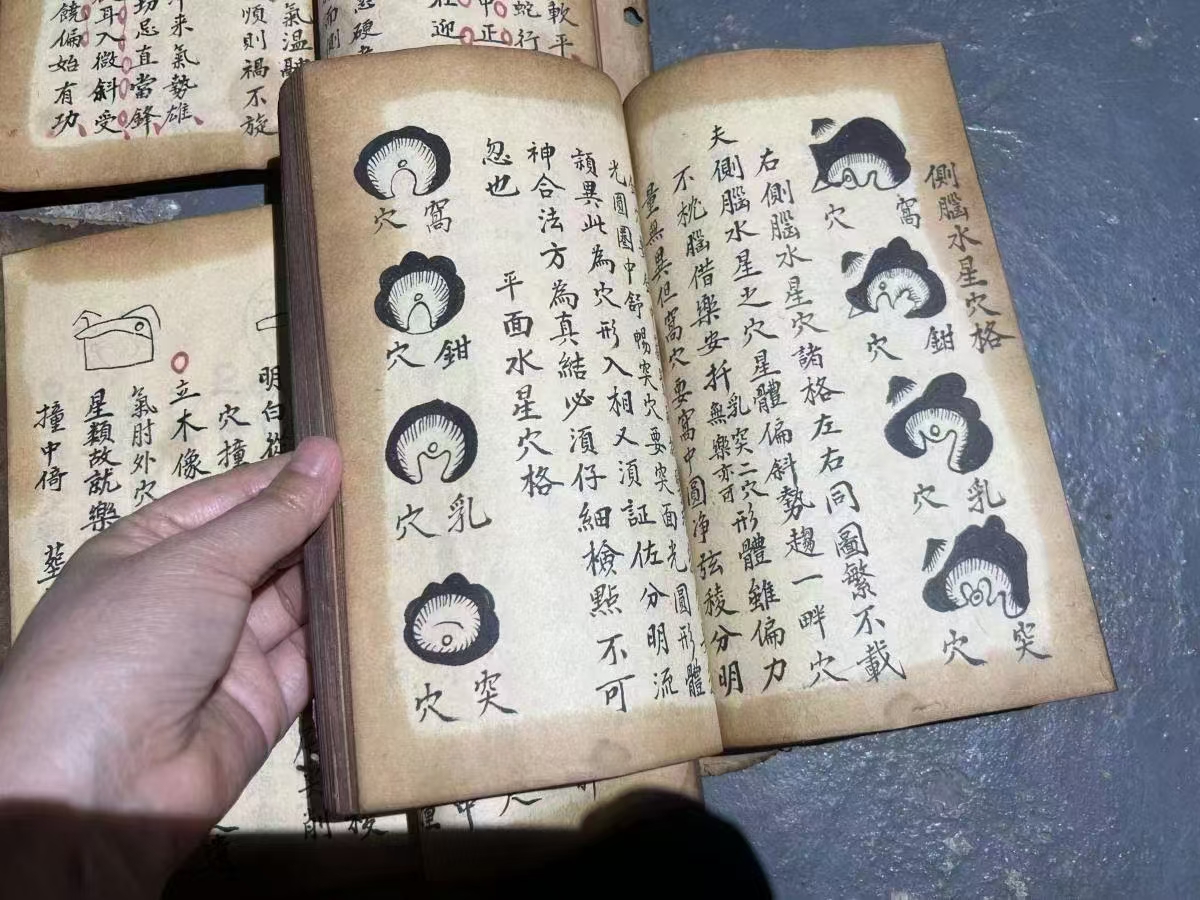 側腦水星穴格
窩穴
鉗穴
乳穴
突穴
右側腦水星穴諸格左右同圖繁不載
夫側腦水星之穴星體偏斜勢趨一畔穴
不枕腦借樂安扦無樂亦可乳突二穴形體雖偏力
量無異但窩穴要窩中圓净弦稜分明
光圓圓中舒暢突穴要突面光圓形體
頴異此為穴形入相又須証佐分明流
神合法方為真結必須仔細檢點不可
忽也
平面水星穴格
窩穴
鉗穴
乳穴
突穴
軟平
蛇行
中正
氣温
順則禍不旋
來氣勢雄
切忌直當鋒
耳入微斜受
饒偏始有功
明白從
穴撞
立木像
氣肘外穴
星類故就樂
撞中倚